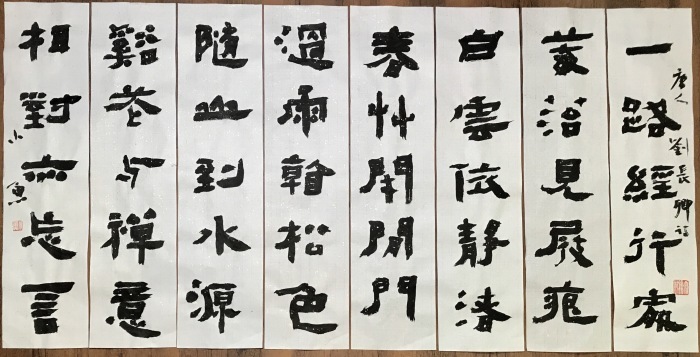 一路經行處
唐人劉長卿詩
莓苔見屐痕
白雲依靜渚
春艸閉閒門
過雨看松色
隨山到水源
谿花与禪意
相對亦忘言
小魚